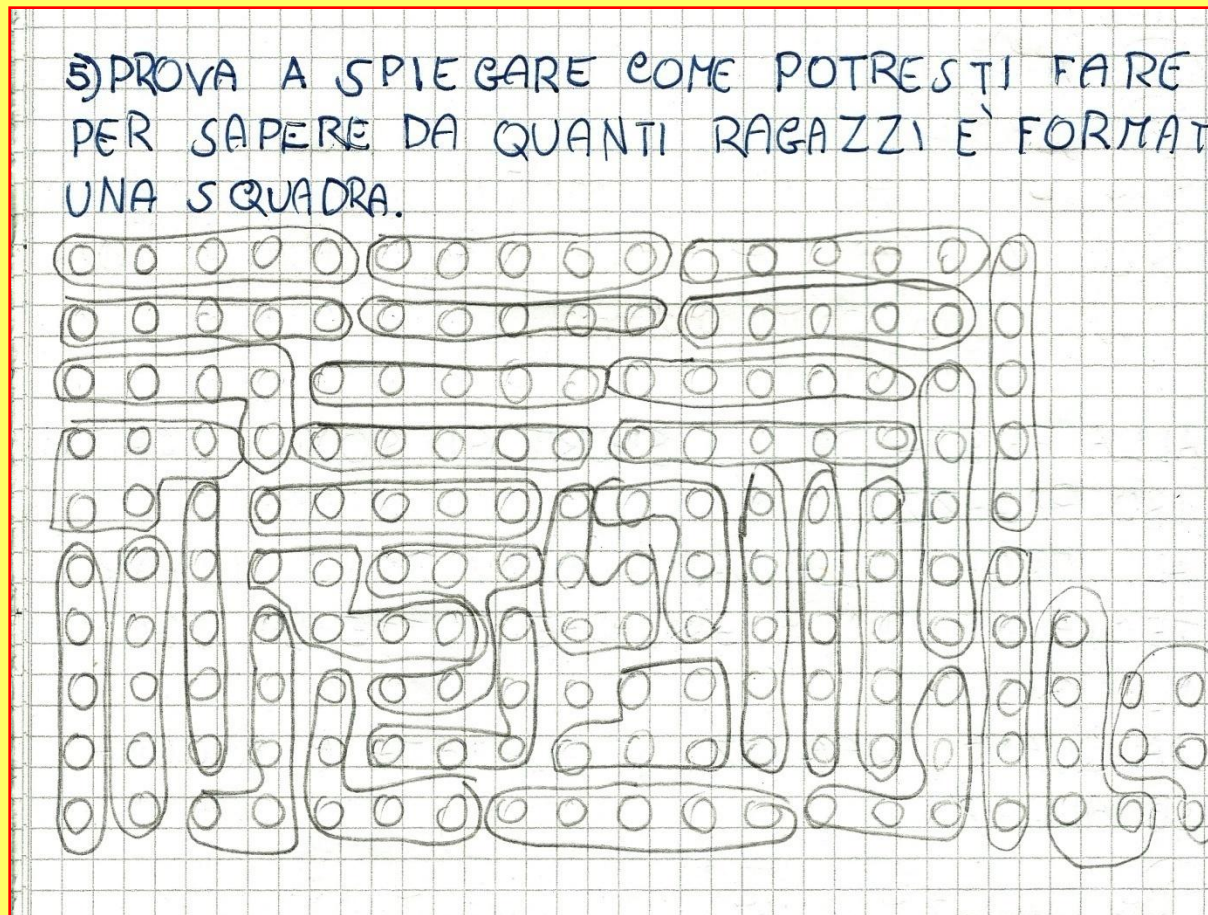 5) PROVA A SPIEGARE COME POTRESTI FARE
PER SAPERE DA QUANTI RAGAZZI È FORMAT
UNA SQUADRA.